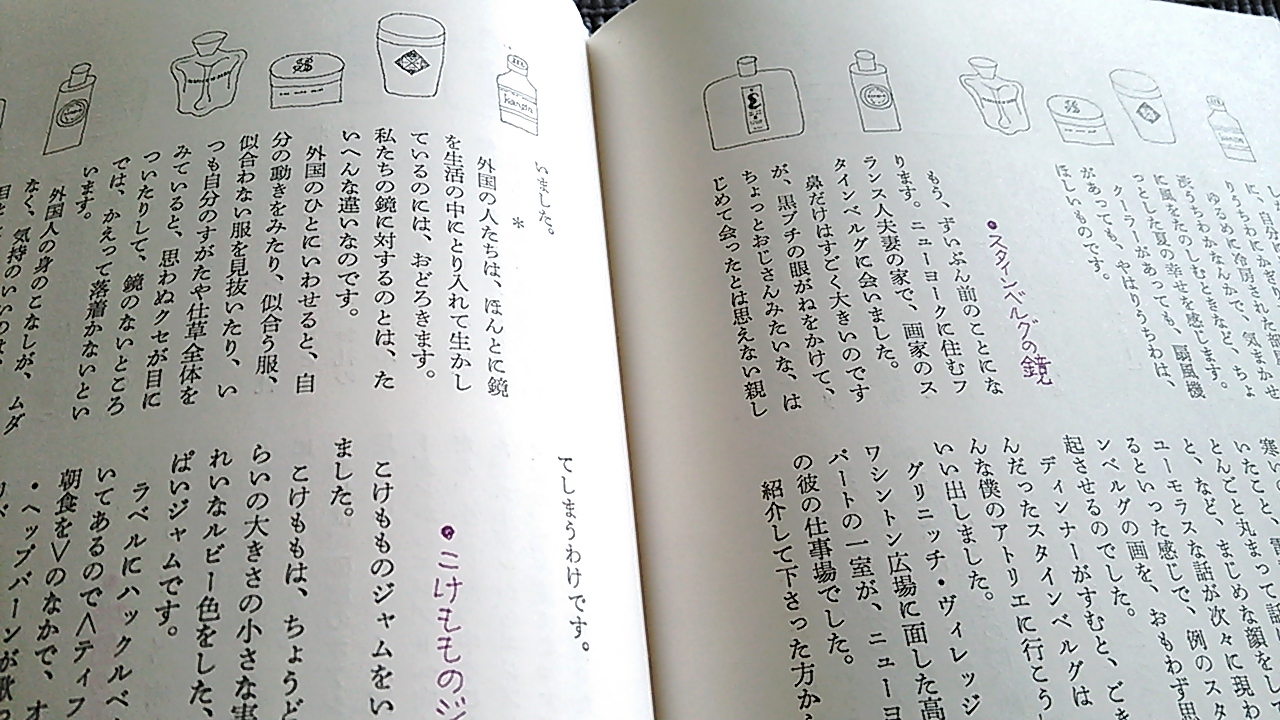 に、自分に
りうちわは冷房された部屋
ゆるめに
渋うちわかなんかで、気まかせ
に風をたのしむときなど、ちょ
っとした夏の幸せを感じます。
クーラーがあっても、扇風機
があっても、やはりうちわは、
ほしいものです。
スタインベルグの鏡
もう、ずいぶん前のことにな
ります。ニューヨークに住むフ
ランス人夫妻の家で、画家のス
タインベルグに会いました。
鼻だけはすごく大きいのです
が、黒ブチの眼がねをかけて、
ちょっとおじさんみたいな、は
じめて会ったとは思えない親し
寒い
いたこと、
とんごと丸まって
と、など、まじめな顔をし
ユーモラスな話が次々に現わ
るといった感じで、例のスタ
ンベルグの画を、おもわず思
起させるのでした。
ディナーがすむと、どき
んだったスタインベルグは
んな僕のアトリエに行こう
いい出しました。
グリニッチ・ヴィレッジ
ワシントン広場に面した高
パートの一室が、ニューヨ
の彼の仕事場でした。
紹介して下さった方か
いました。
*
外国の人たちは、ほんとに鏡
を生活の中にとり入れて生かし
ているのには、おどろきます。
私たちの鏡に対するのとは、た
いへんな違いなのです。
外国のひとにいわせると、自
分の動きをみたり、似合う服、
似合わない服を見抜いたり、い
つも自分のすがたや仕草全体を
みていると、思わぬクセが目に
ついたりして、鏡のないところ
では、かえって落着かないとい
います。
外国人の身のこなしが、ムダ
なく、気持のいいのは、
てしまうわけです。
こけもものジ
こけもものジャムをい
ました。
こけももは、ちょうど
らいの大きさの小さな実
れいなルビー色をした、
ぱいジャムです。
ラベルにハックルベ
いてあるので＜ティフ
朝食を＞のなかで、オ
・ヘップバーンが歌